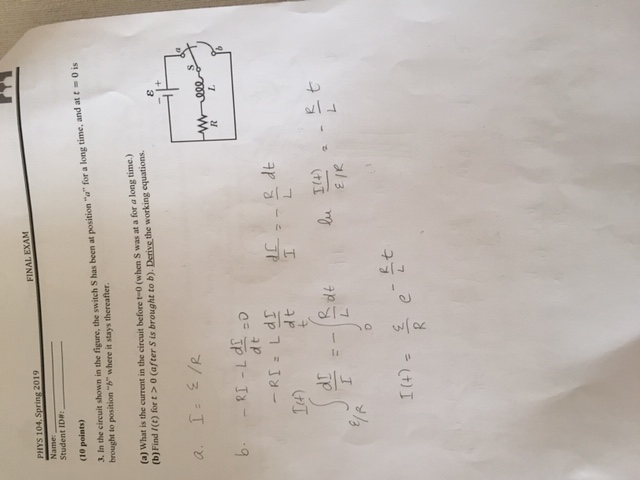 PHYS 104, Spring 2019
FINAL EXAM
Name:
Student ID#:
(10 points)
3. In the circuit shown in the figure, the switch S has been at position "a" for a long time, and at t = 0 is
brought to position "b" where it stays thereafter.
(a) What is the current in the circuit before t=0 (when S was at a for a long time.)
(b) Find I(t) for t > 0 (after S is brought to b). Derive the working equations.
ε
- +
a
S
R L
b
a. I = ε/R
b. - RI - L dI/dt = 0
- RI = L dI/dt
dI/I = - R/L dt
∫_{ε/R}^{I(t)} dI/I = - ∫_0^t R/L dt
ln I(t)/ε/R = - R/L t
I(t) = ε/R e^{- R/L t}